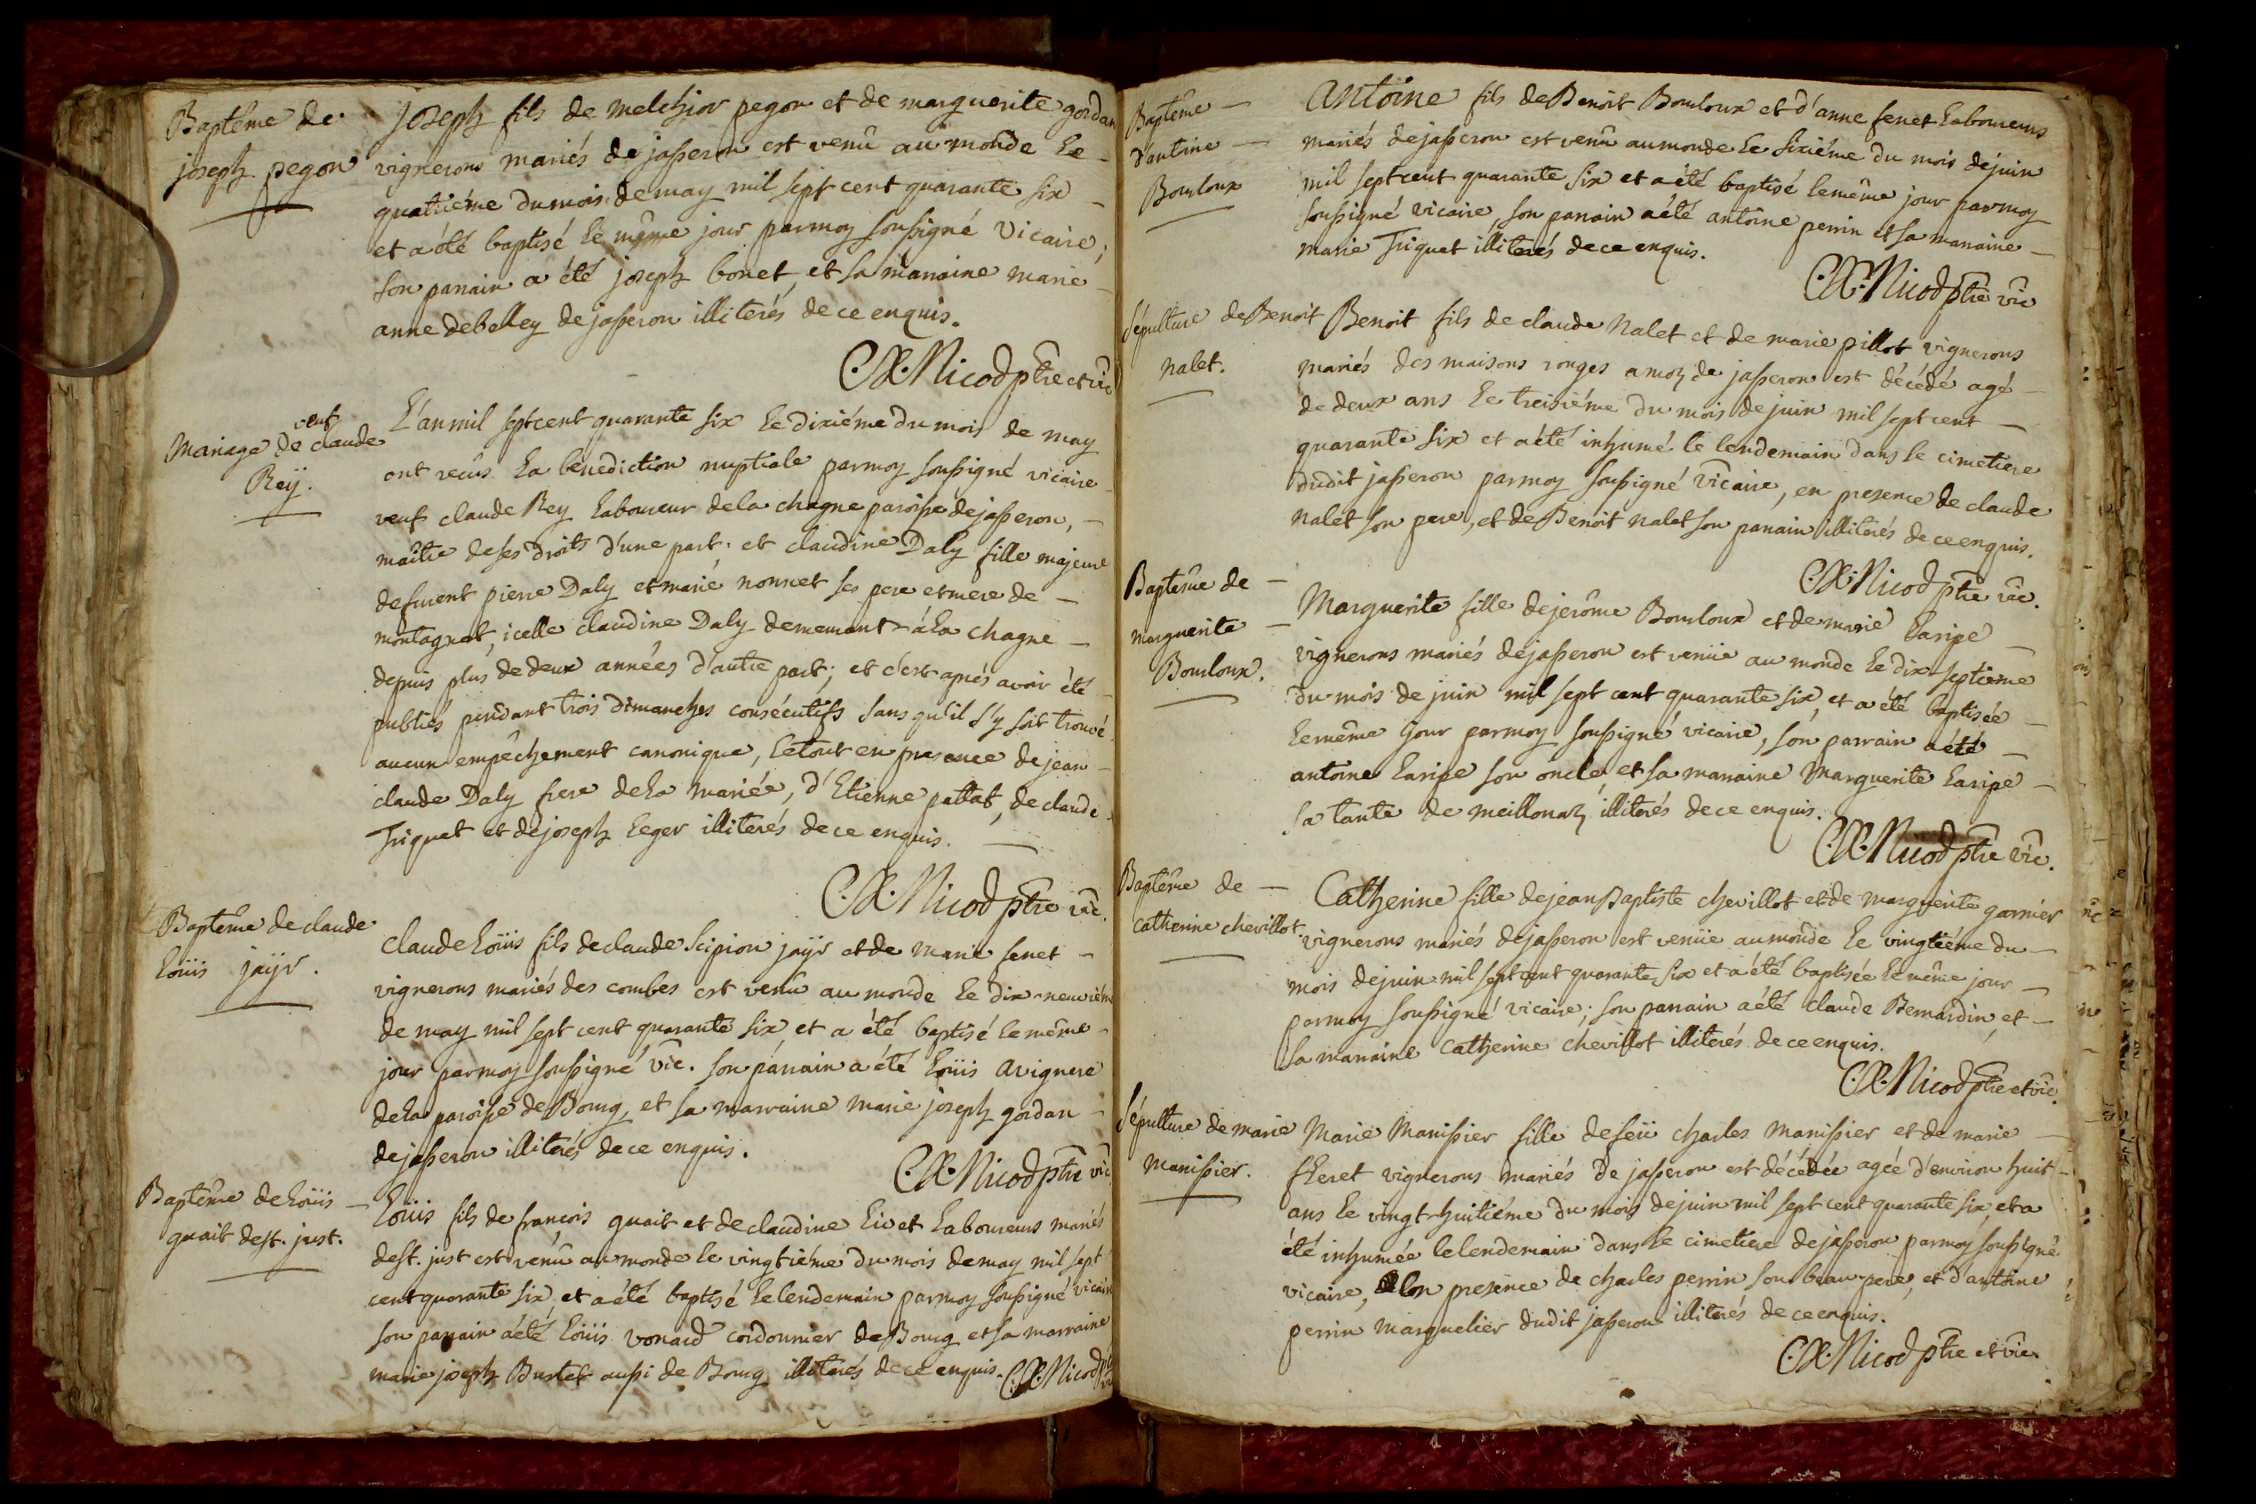 Baptême de
joseph pegon
joseph fils de melchior pegon et de marguerite gordan
vignerons mariés de jasseron est venû au monde le
quatriéme du mois de may mil sept cent quarante six
et a été baptisé le même jour par moy soussigné vicaire,
son parrain a été joseph bonet, et sa marraine marie
anne debelley de jasseron illiterés de ce enquis.
C.X. Nicod ptre et vic
Mariage de veuf claude
Rey.
L'an mil sept cent quarante six le dixiéme du mois de may
ont recûs la benediction nuptiale par moy soussigné vicaire
veuf claude Rey laboureur de la chagne paroisse de jasseron,
maître de ses droits d'une part. et claudine Daly fille majeure
de fuent pierre Daly et marie nonnet ses pere et mere de
montagnat, icelle claudine Daly demeurant à la chagne
depuis plus de deux années d'autre part; et c'est aprés avoir été
publiés pendant trois dimanches consécutifs sans qu'il s'y soit trouvé
aucun empêchement canonique, le tout en presence de jean
claude Daly frere de la mariée, d'Etienne pattat, de claude
Triquet et de joseph leger illiterés de ce enquis.
C.X. Nicod ptre vic.
Baptême de claude
loüis jaÿr.
claude loüis fils de claude scipion jaÿr et de marie fenet
vignerons mariés des combes est venû au monde le dix-neuviéme
de may mil sept cent quarante six, et a été baptisé le même
jour par moy soussigné vic. son parrain a été loüis avignere
de la paroisse de Bourg, et sa marraine marie joseph gordan
de jasseron illiterés de ce enquis.
C.X. Nicod ptre vic
Baptême de loüis
guait de st. just.
loüis fils de francois guait et de claudine livet laboureurs mariés
de st. just est venû au monde le vingtiéme du mois de may mil sept
cent quarante six, et a été baptisé le lendemain par moy soussigné vicaire
son parrain a été loüis vonard cordonnier de Bourg et sa marraine
marie joseph Burtet aussi de Bourg illiterés de ce enquis. C.X. Nicod ptre
Baptême
d'antoine
Bouvloux
antoine fils de Benoit Bouvloux et d'anne fenet laboureurs
mariés de jasseron est venû au monde le sixiéme du mois de juin
mil sept cent quarante six et a été baptisé le même jour par moy
soussigné vicaire, son parrain a été antoine perrin et sa marraine
marie Triquet illiterés de ce enquis.
C.X. Nicod ptre vic
Sépulture de Benoit
nalet.
Benoit fils de claude nalet et de marie pillot vignerons
mariés des maisons rouges amoz de jasseron est décédé agé
de deux ans le treisiéme du mois de juin mil sept cent
quarante six et a été inhumé le lendemain dans le cimetiere
dudit jasseron par moy soussigné vicaire, en presence de claude
nalet son pere, et de Benoit nalet son parrain illiterés de ce enquis.
C.X. Nicod ptre vic.
Baptême de
marguerite
Bouvloux.
Marguerite fille de jerôme Bouvloux et de marie Laripe
vignerons mariés de jasseron est venüe au monde le dix septieme
du mois de juin mil sept cent quarante six, et a été baptisée
le même jour par moy soussigné vicaire, son parrain a été
antoine Laripe son oncle, et sa marraine Marguerite Laripe
sa tante de meillonaz, illiterés de ce enquis.
C.X. Nicod ptre vic.
Baptême de
catherine chevillot.
Catherine fille de jean Baptiste chevillot et de marguerite garnier
vignerons mariés de jasseron est venüe au monde le vingtiéme du
mois de juin mil sept cent quarante six et a été baptisée le même jour
par moy soussigné vicaire; son parrain a été claude Bernardin, et
sa marraine catherine chevillot illiterés de ce enquis.
C.X. Nicod ptre et vic.
Sépulture de marie
manissier.
Marie Manissier fille de feü charles manissier et de marie
fleret vignerons mariés de jasseron est décédée agée d'environ huit
ans le vingt-huitiéme du mois de juin mil sept cent quarante six, et a
été inhumée le lendemain dans le cimetiere de jasseron par moy soussigné
vicaire, en presence de charles perrin son beau pere, et d'antoine
perrin marguelier dudit jasseron illiterés de ce enquis.
C.X. Nicod ptre et vic.